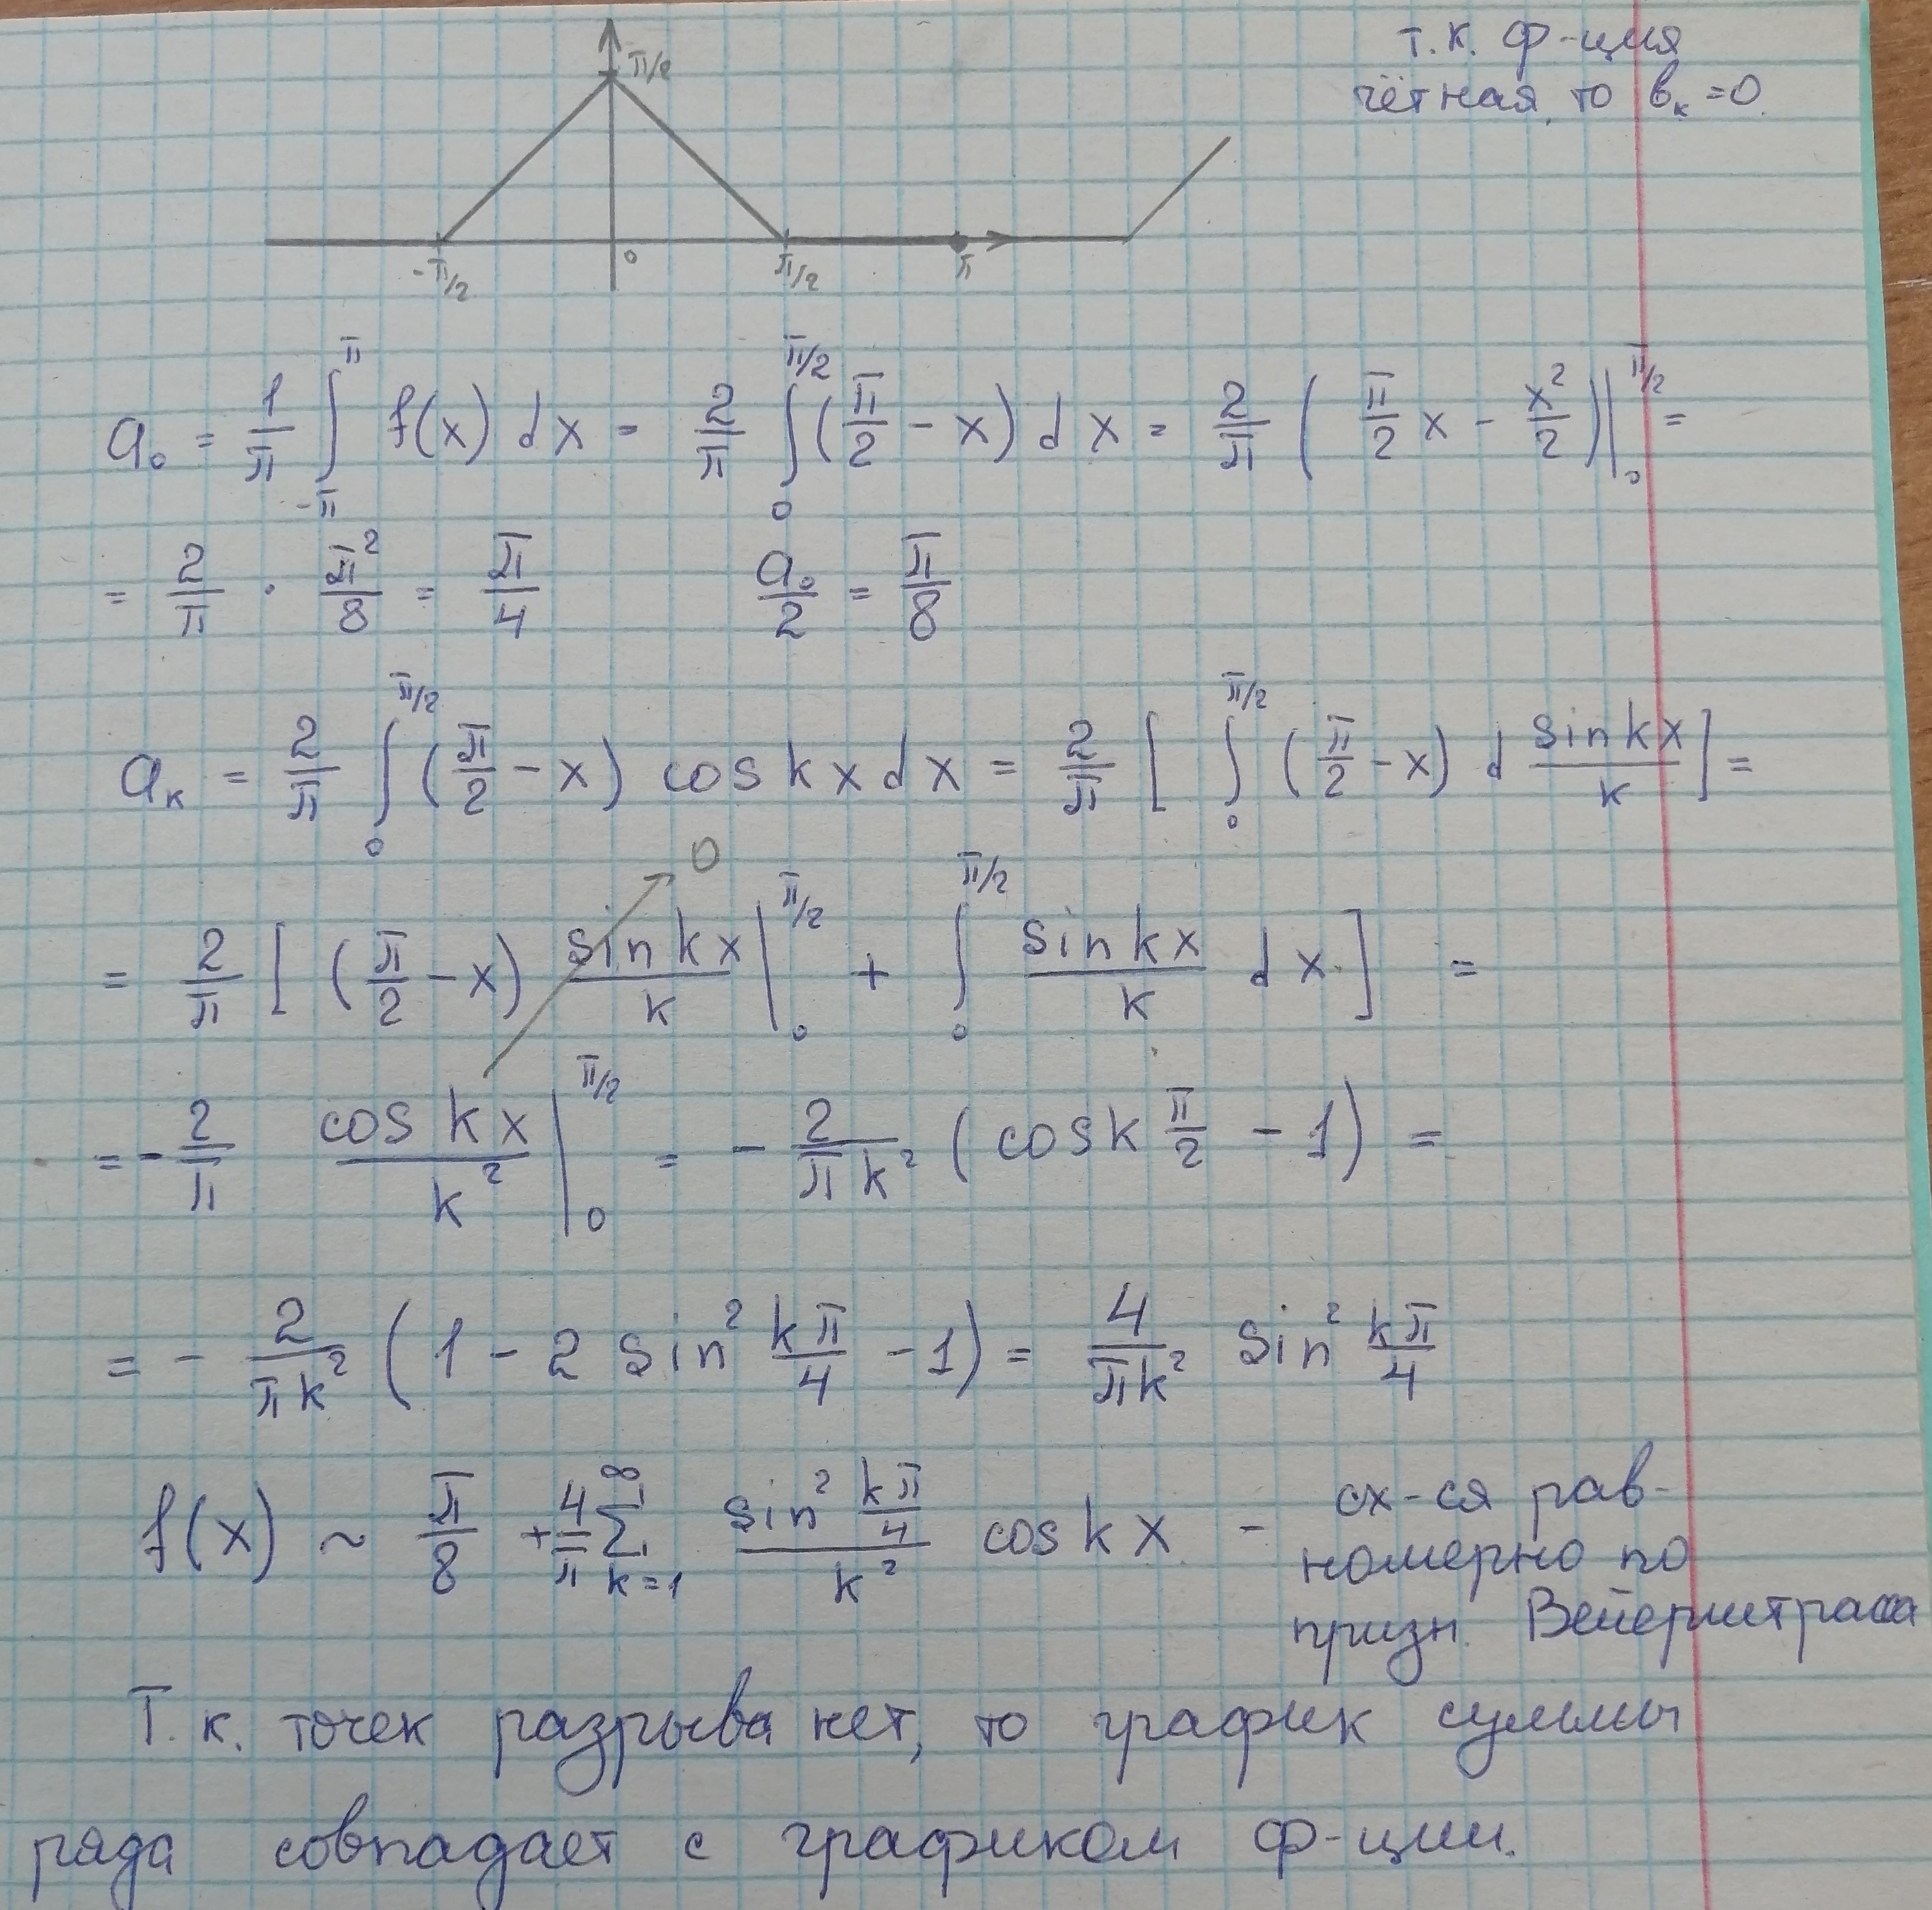 т.к. ф-ция
чётная, то b_k = 0.
π/2
-π/2 0 π/2 π
a_0 = \frac{1}{π} \int_{-π}^{π} f(x) dx = \frac{2}{π} \int_0^{π/2} (\frac{π}{2} - x) dx = \frac{2}{π} ( \frac{π}{2} x - \frac{x^2}{2} ) |_0^{π/2} =
= \frac{2}{π} · \frac{π^2}{8} = \frac{π}{4} \frac{a_0}{2} = \frac{π}{8}
a_k = \frac{2}{π} \int_0^{π/2} (\frac{π}{2} - x) cos kx dx = \frac{2}{π} [ \int_0^{π/2} (\frac{π}{2} - x) d \frac{sin kx}{k} ] =
0
= \frac{2}{π} [ (\frac{π}{2} - x) \frac{sin kx}{k} |_0^{π/2} + \int_0^{π/2} \frac{sin kx}{k} dx ] =
= - \frac{2}{π} \frac{cos kx}{k^2} |_0^{π/2} = - \frac{2}{πk^2} ( cos k \frac{π}{2} - 1 ) =
= - \frac{2}{πk^2} ( 1 - 2 sin^2 \frac{kπ}{4} - 1 ) = \frac{4}{πk^2} sin^2 \frac{kπ}{4}
f(x) ~ \frac{π}{8} + \frac{4}{π} \sum_{k=1}^{∞} \frac{sin^2 \frac{kπ}{4}}{k^2} cos kx - сх-ся рав-
номерно по
призн. Вейерштрасса
Т.к. точек разрыва нет, то график суммы
ряда совпадает с графиком ф-ции.